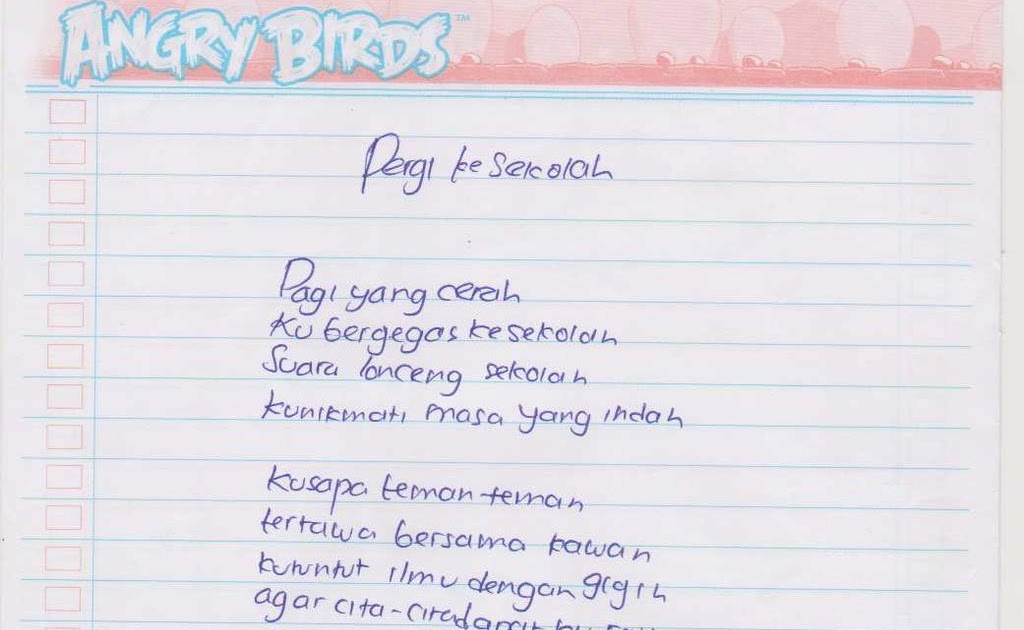 ANGRY BIRDS™
Pergi ke sekolah
Pagi yang cerah
Ku bergegas ke sekolah
Suara lonceng sekolah
kunikmati masa yang indah
kusapa teman-teman
tertawa bersama kawan
kutuntut ilmu dengan gigih
agar cita-cita dapat